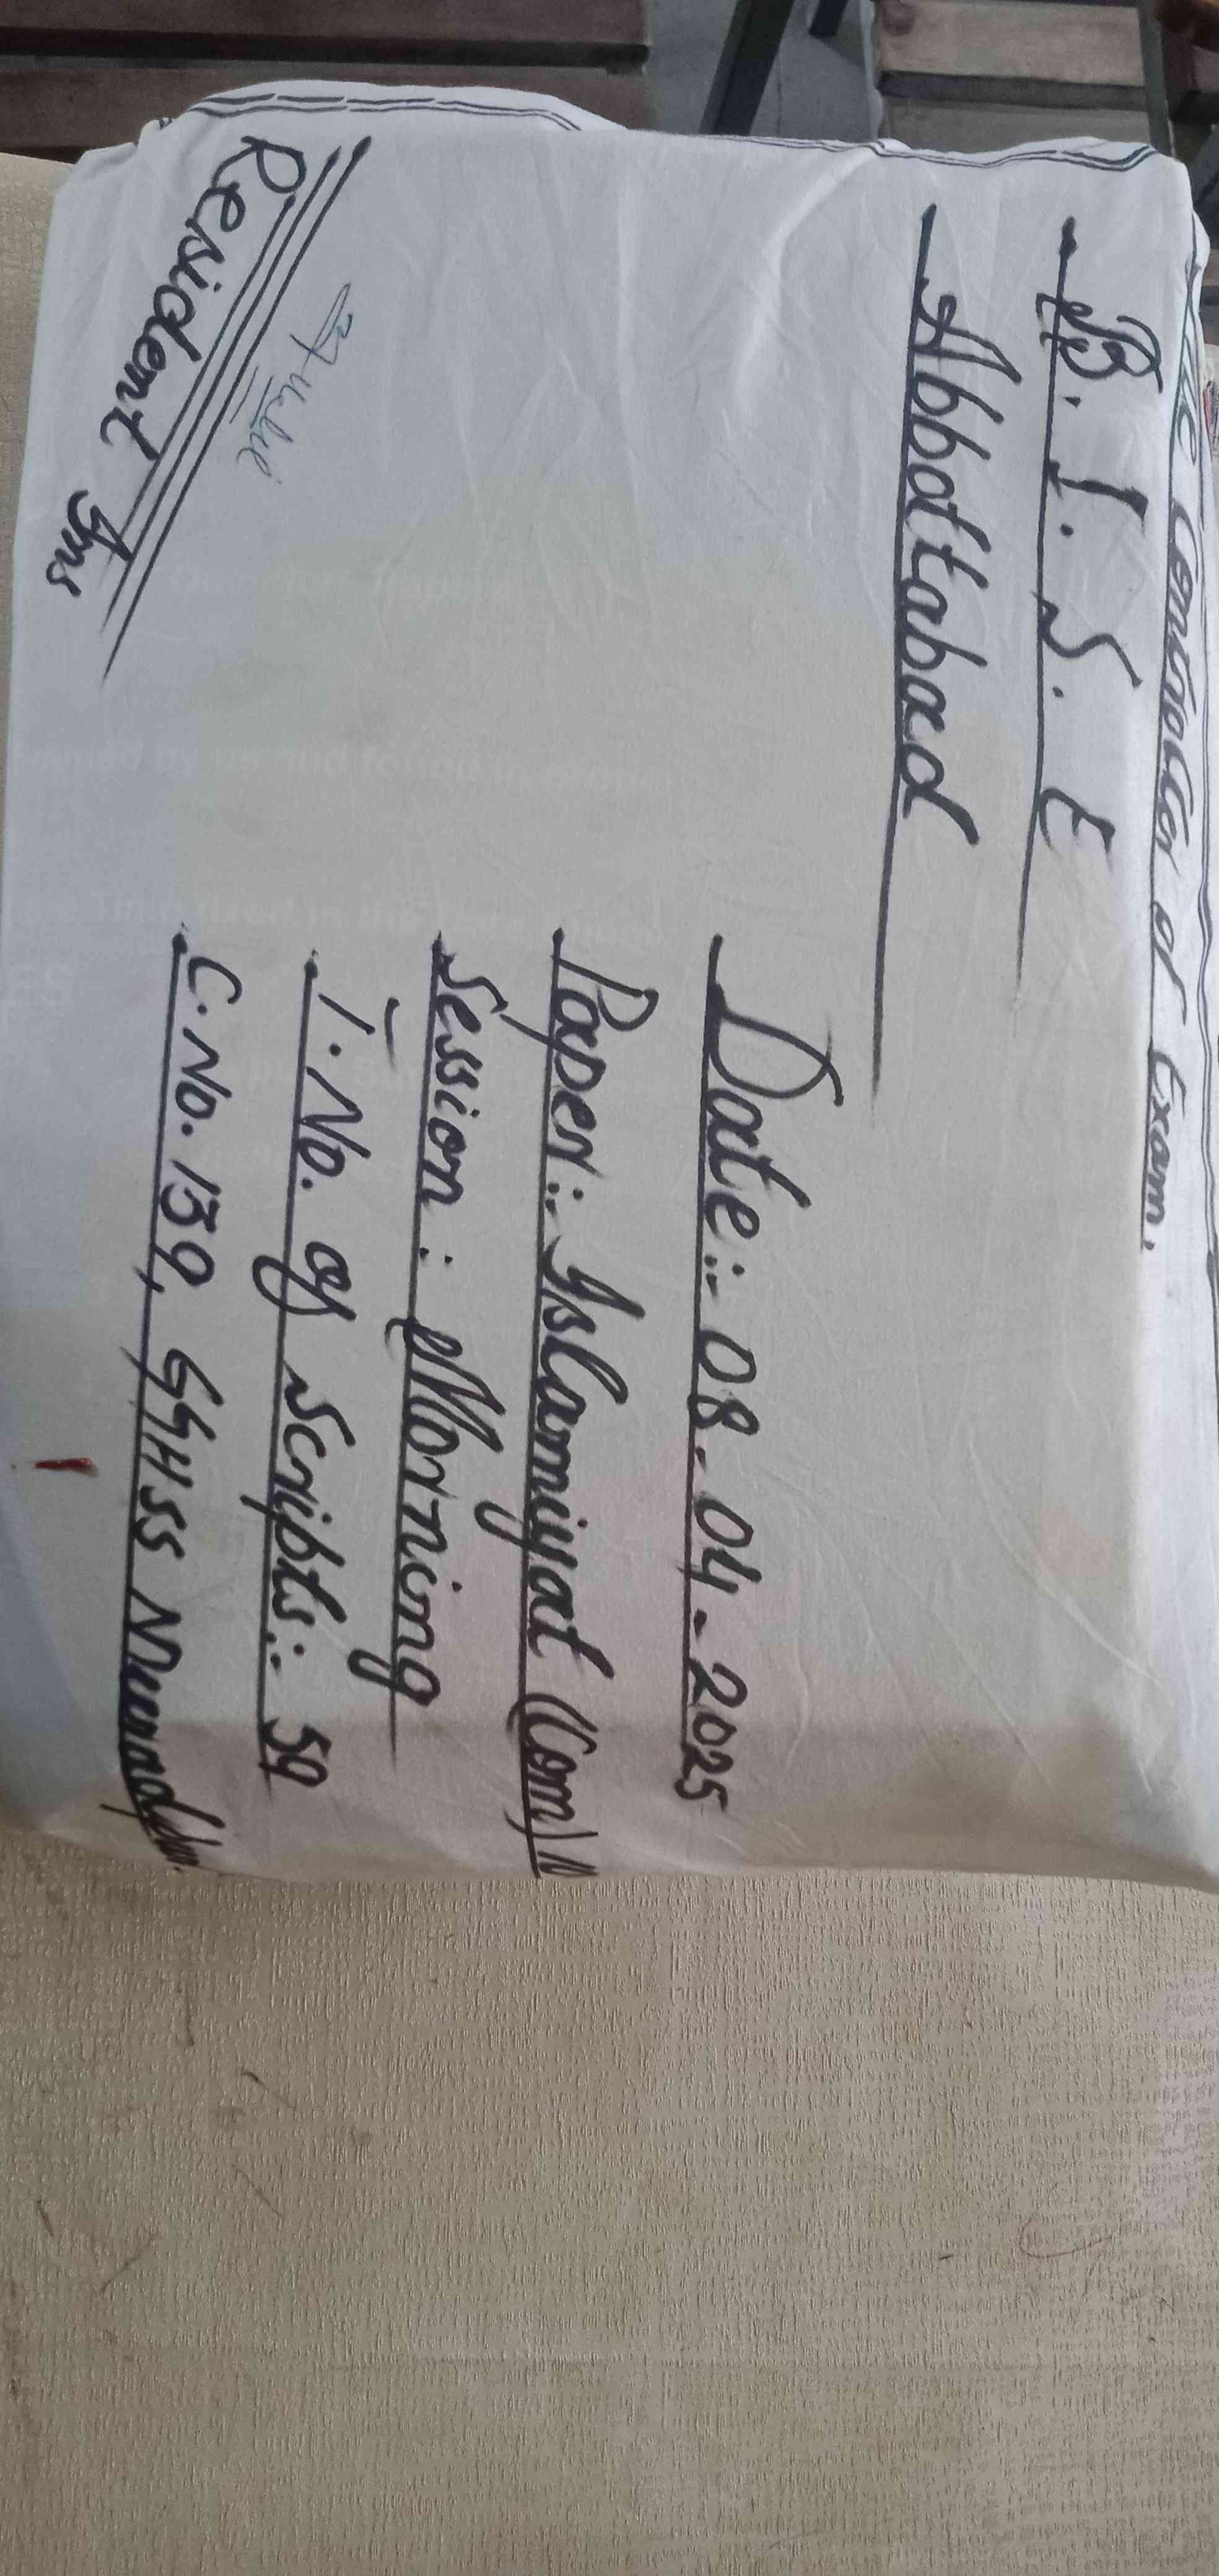 The Controller of Exam.
B. I. S. E
Abbottabad
Date:- 08-04-2025
Paper:- Islamiyat (Com)
Session: Morning
T. No. of Scripts:- 59
C. No. 139, GGHSS
Resident Ins